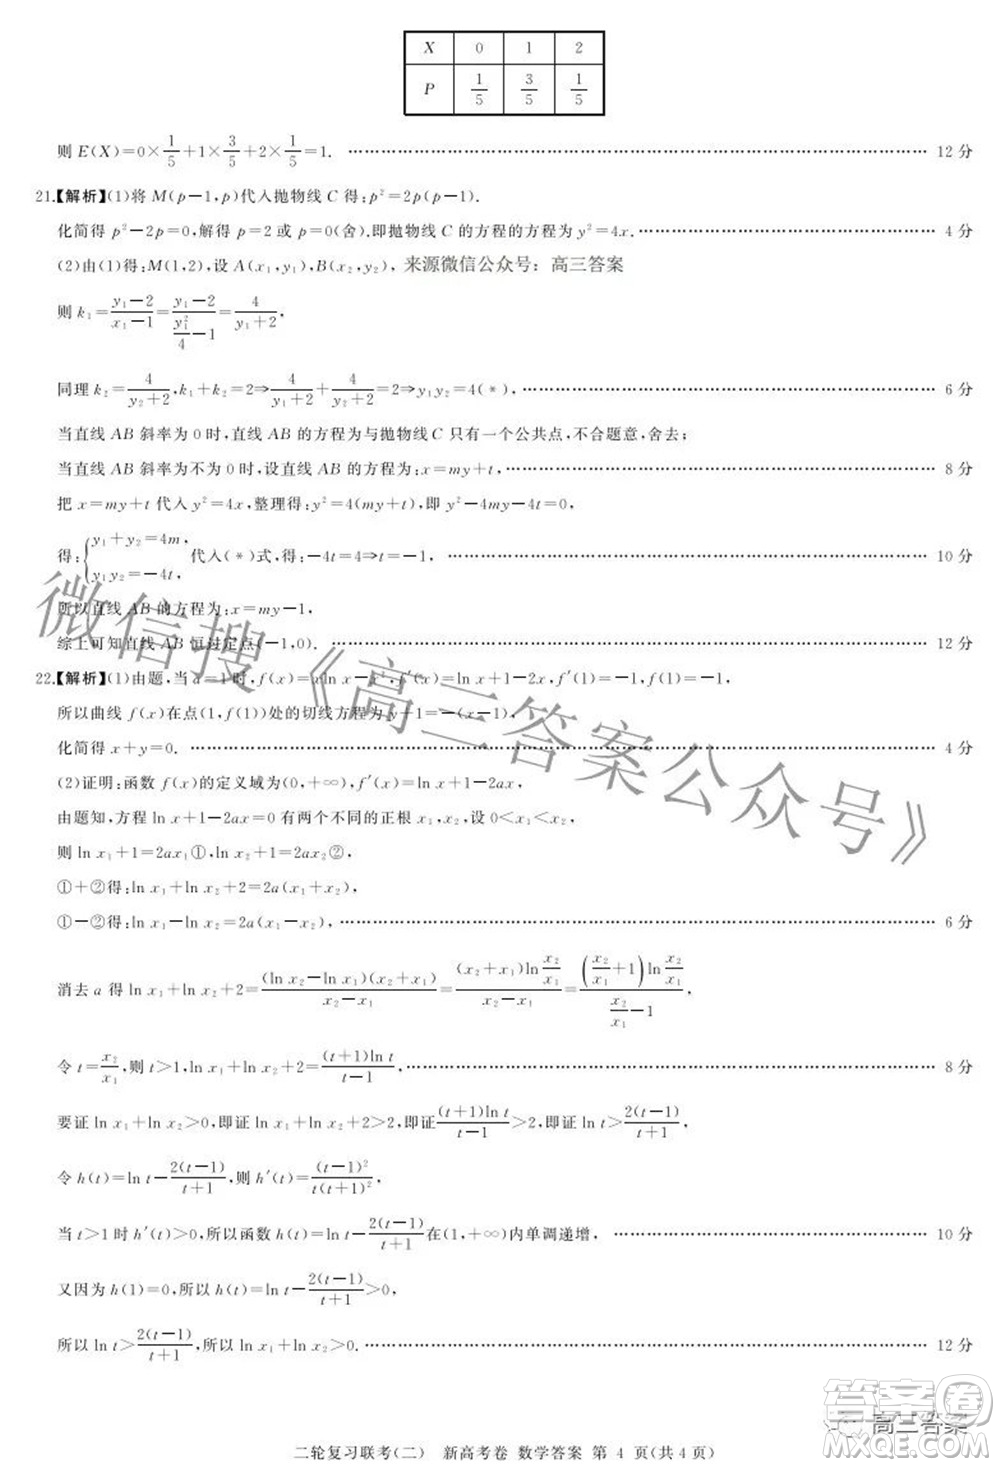 X 0 1 2
P 1/5 3/5 1/5
则 E(X)=0×1/5+1×3/5+2×1/5=1. ………… 12 分
21.【解析】(1)将 M(p−1,p)代入抛物线 C 得:p²=2p(p−1).
化简得 p²−2p=0,解得 p=2 或 p=0(舍).即抛物线 C 的方程的方程为 y²=4x. ………… 4 分
(2)由(1)得:M(1,2),设 A(x₁,y₁),B(x₂,y₂), 来源微信公众号：高三答案
则 k₁=(y₁−2)/(x₁−1)=(y₁−2)/(y₁²/4−1)=4/(y₁+2),
同理 k₂=4/(y₂+2),k₁+k₂=2⇒4/(y₁+2)+4/(y₂+2)=2⇒y₁y₂=4(*), ………… 6 分
当直线 AB 斜率为 0 时,直线 AB 的方程为与抛物线 C 只有一个公共点,不合题意,舍去;
当直线 AB 斜率为不为 0 时,设直线 AB 的方程为:x=my+t, ………… 8 分
把 x=my+t 代入 y²=4x,整理得:y²=4(my+t),即 y²−4my−4t=0,
得:{y₁+y₂=4m, y₁y₂=−4t, 代入(*)式,得:−4t=4⇒t=−1, ………… 10 分
所以直线 AB 的方程为:x=my−1,
综上可知直线 AB 恒过定点(−1,0). ………… 12 分
22.【解析】(1)由题,当 a=1 时,f(x)=xln x−x²,f′(x)=ln x+1−2x,f′(1)=−1,f(1)=−1,
所以曲线 f(x)在点(1,f(1))处的切线方程为 y+1=−(x−1),
化简得 x+y=0. ………… 4 分
(2)证明:函数 f(x)的定义域为(0,+∞),f′(x)=ln x+1−2ax,
由题知,方程 ln x+1−2ax=0 有两个不同的正根 x₁,x₂,设 0<x₁<x₂,
则 ln x₁+1=2ax₁①,ln x₂+1=2ax₂②,
①+②得:ln x₁+ln x₂+2=2a(x₁+x₂),
①−②得:ln x₁−ln x₂=2a(x₁−x₂), ………… 6 分
消去 a 得 ln x₁+ln x₂+2=(ln x₂−ln x₁)(x₂+x₁)/(x₂−x₁)=(x₂+x₁)ln(x₂/x₁)/(x₂−x₁)=(x₂/x₁+1)ln(x₂/x₁)/(x₂/x₁−1),
令 t=x₂/x₁,则 t>1,ln x₁+ln x₂+2=(t+1)ln t/(t−1), ………… 8 分
要证 ln x₁+ln x₂>0,即证 ln x₁+ln x₂+2>2,即证(t+1)ln t/(t−1)>2,即证 ln t>2(t−1)/(t+1),
令 h(t)=ln t−2(t−1)/(t+1),则 h′(t)=(t−1)²/(t(t+1)²),
当 t>1 时 h′(t)>0,所以函数 h(t)=ln t−2(t−1)/(t+1)在(1,+∞)内单调递增, ………… 10 分
又因为 h(1)=0,所以 h(t)=ln t−2(t−1)/(t+1)>0,
所以 ln t>2(t−1)/(t+1),所以 ln x₁+ln x₂>0. ………… 12 分
微信搜《高三答案公众号》
答案圈
高三答案
MXQE.COM
二轮复习联考(二) 新高考卷 数学答案 第 4 页(共 4 页)